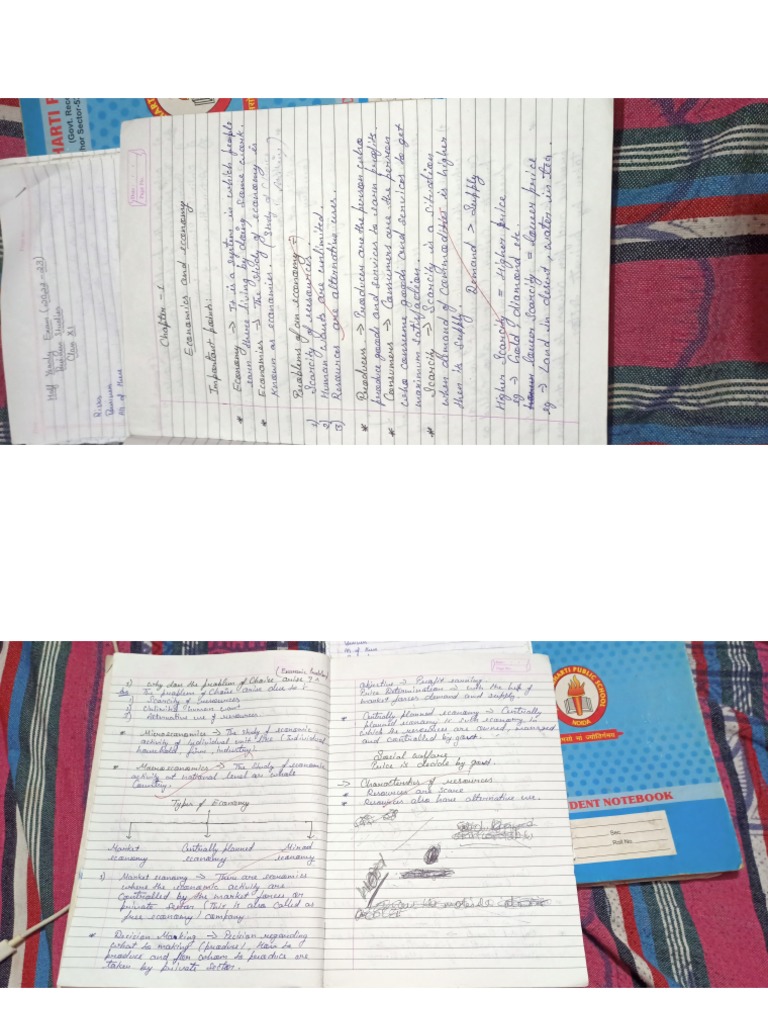 Chapter - 1
Economics and economy
Important points:
* Economy → It is a system in which people
earn there living by doing some work.
* Economics → The study of economy is
known as economics.
Problems of an economy →
1) Scarcity of resources
2) Human wants are unlimited.
3) Resources are alternative uses.
* Producers → Producer are the person who
produce goods and services to earn profits
* Consumers → Consumers are the person
who consume goods and services to get
maximum satisfaction.
* Scarcity → Scarcity is a situation
when demand of commodities is higher
then is supply. Demand > Supply
Higher Scarcity = Higher price
eg → Gold, diamond etc.
lower Scarcity = lower price
eg → Land in desert, water in
Half Yearly Exam
Class XI
HARTI P
(Govt. Reco
hor Sector-5
(Economic Problem)
why does the problem of choice arises ?
The problem of choice arise due to :
1) Scarcity of resources
2) Unlimited human want
3) Alternative use of resources
* Microeconomics → The study of economic
activity of individual unit like (Individual,
household, firm, industry)
* Macroeconomics → The study of economic
activity at national level or whole
country.
Types of Economy
Market Centrally planned Mixed
economy economy economy
1) Market economy → There are economies
where the economic activity are
controlled by the market forces or
private sector (This is also called as
free economy) company
* Decision Making → Decision regarding
what to making (produce), How to
produce and for whom to produce are
taken by private sector.
objective → Profit earning.
Price Determination → with the help of
market forces demand and supply.
* Centrally planned economy → Centrally
planned economy is such economy in
which the resources are owned, managed
and controlled by govt.
Social welfare
Price is decide by govt.
→ Characteristics of resources
* Resources are scarce
* Resources also have alternative use.
HARTI PUBLIC SCHOOL
NOIDA
DENT NOTEBOOK
Sec
Roll No.